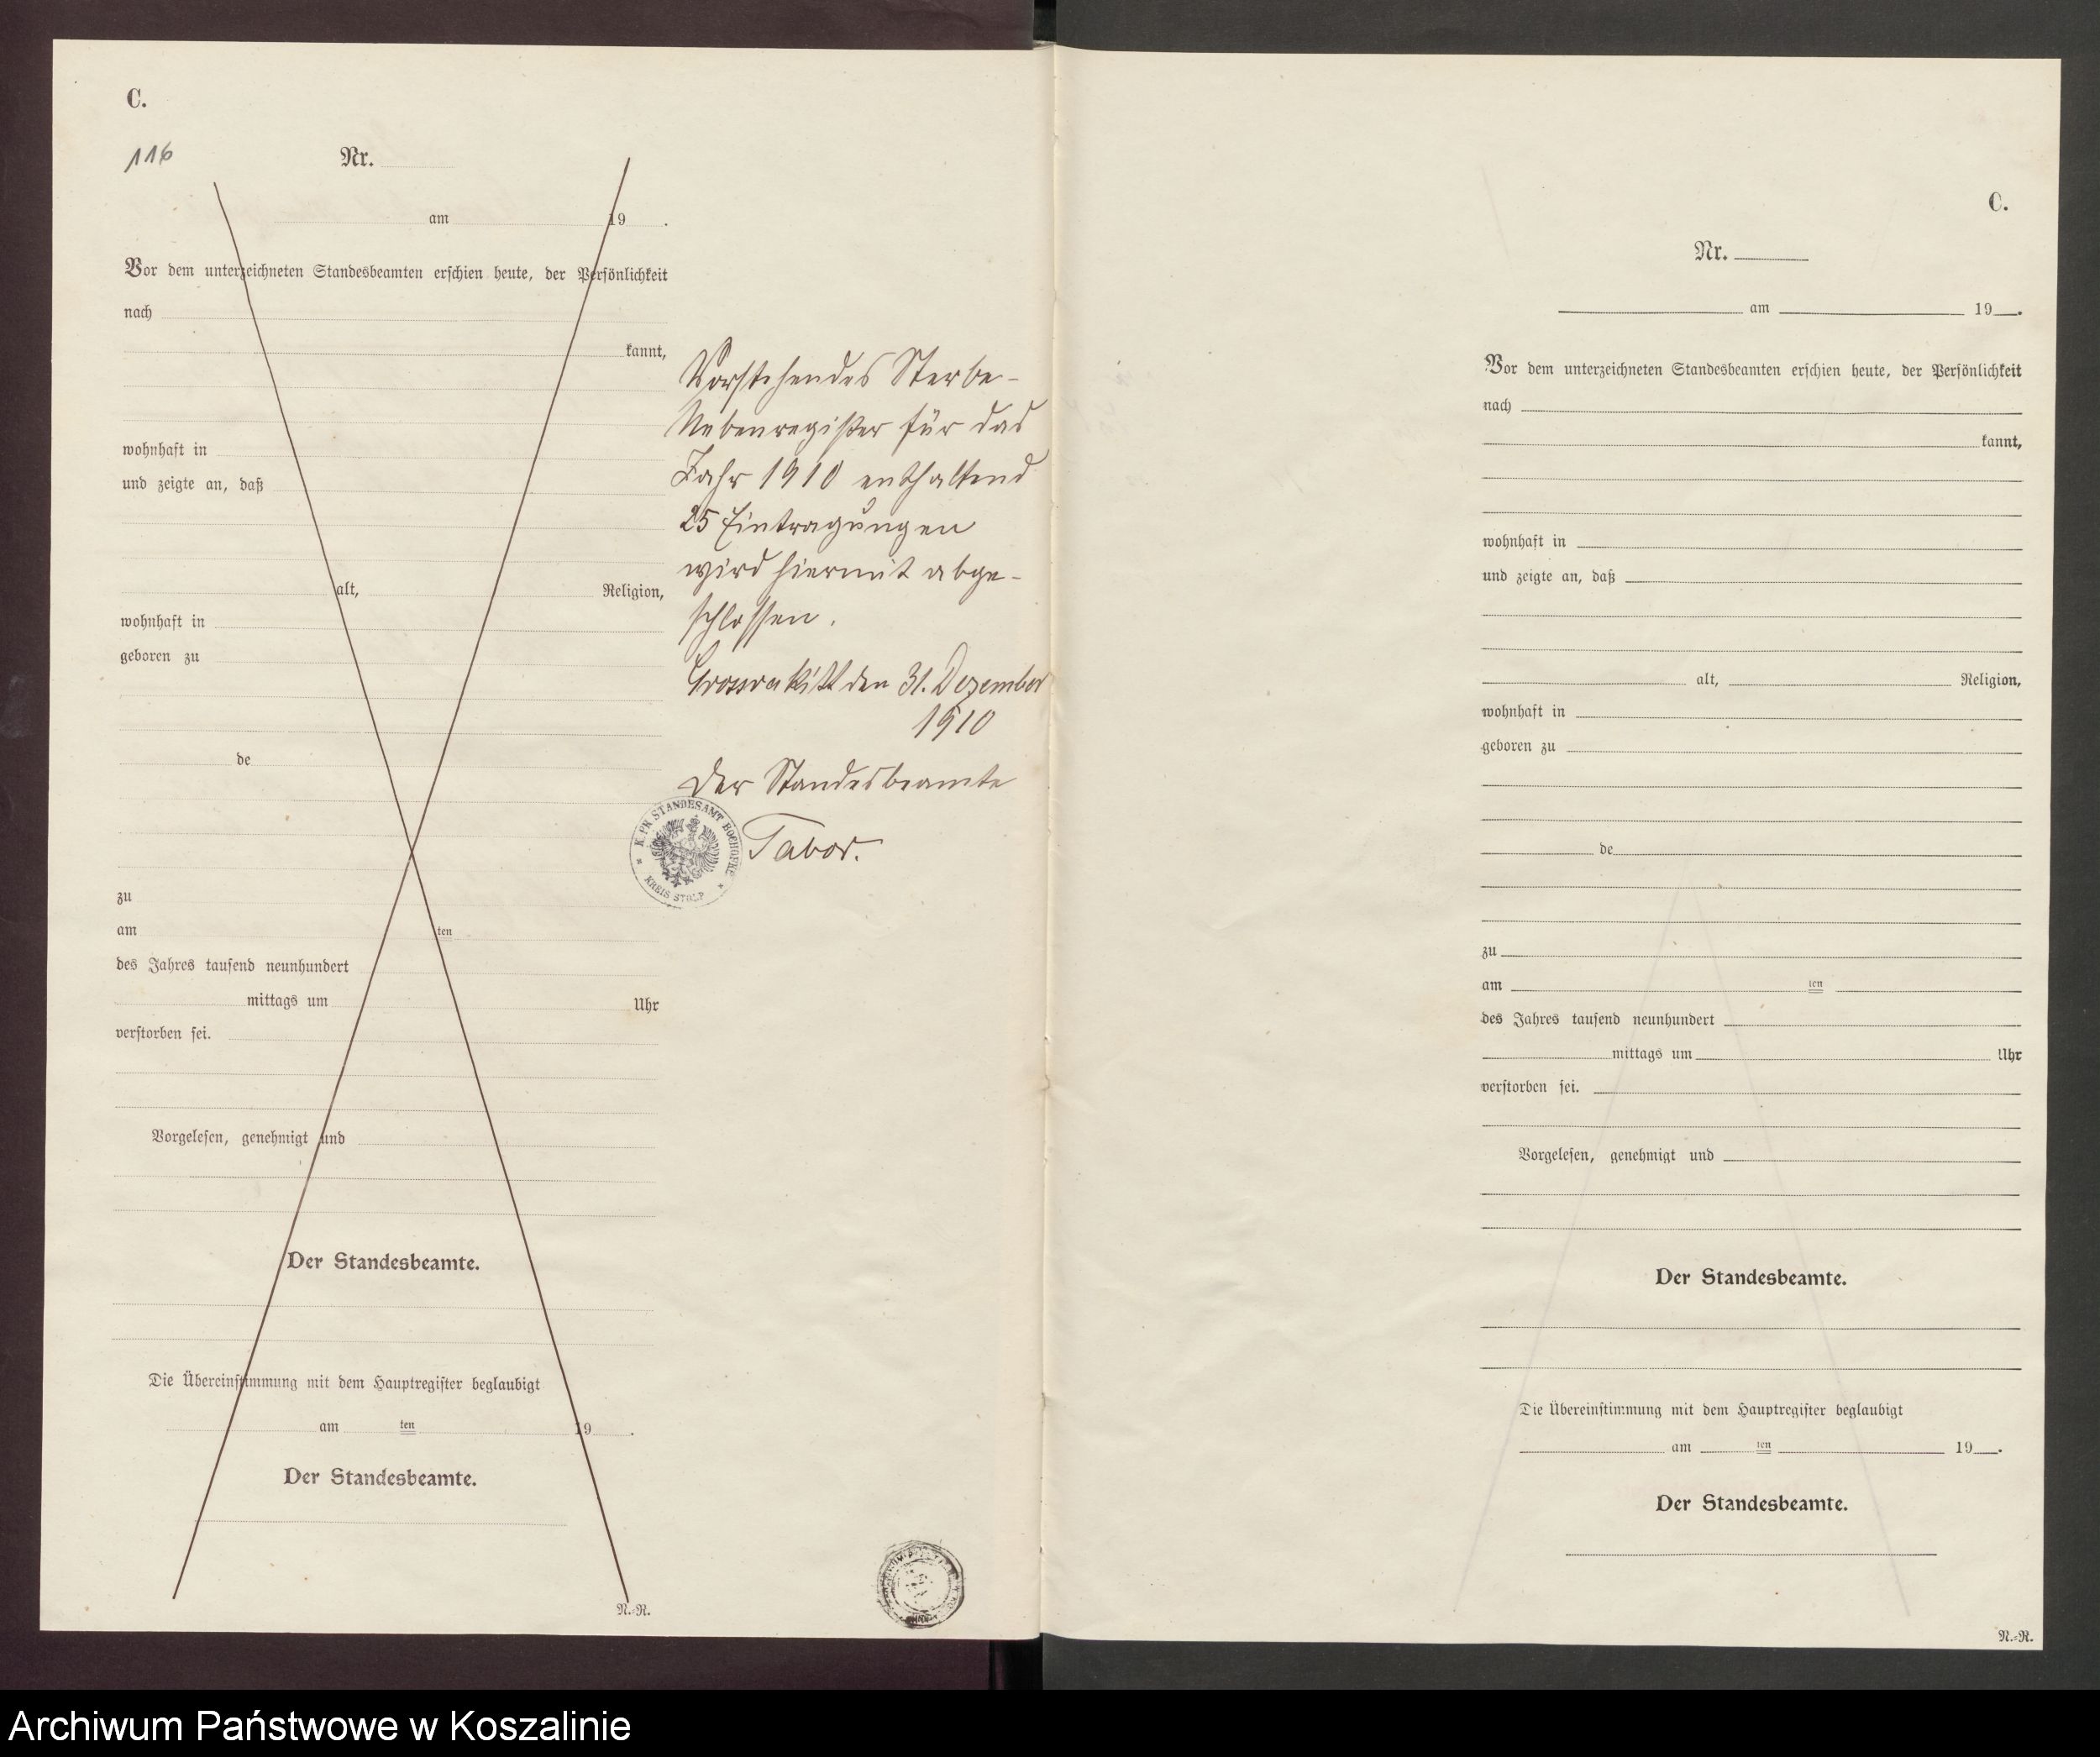 C.
116
Nr.
am 19 .
Vor dem unterzeichneten Standesbeamten erschien heute, der Persönlichkeit
nach
kannt,
wohnhaft in
und zeigte an, daß
alt, Religion,
wohnhaft in
geboren zu
de
zu
am ten
des Jahres tausend neunhundert
mittags um Uhr
verstorben sei.
Vorgelesen, genehmigt und
Der Standesbeamte.
Die Übereinstimmung mit dem Hauptregister beglaubigt
am ten 19 .
Der Standesbeamte.
N.-R.
Vorstehendes Sterbe-
Nebenregister für das
Jahr 1910 enthaltend
25 Eintragungen
wird hiermit abge-
schlossen.
Grossrakitt den 31. Dezember
1910
Der Standesbeamte
Tabor.
K. PR. STANDESAMT
KREIS STOLP
C.
Nr.
am 19 .
Vor dem unterzeichneten Standesbeamten erschien heute, der Persönlichkeit
nach
kannt,
wohnhaft in
und zeigte an, daß
alt, Religion,
wohnhaft in
geboren zu
de
zu
am ten
des Jahres tausend neunhundert
mittags um Uhr
verstorben sei.
Vorgelesen, genehmigt und
Der Standesbeamte.
Die Übereinstimmung mit dem Hauptregister beglaubigt
am ten 19 .
Der Standesbeamte.
N.-R.
Archiwum Państwowe w Koszalinie